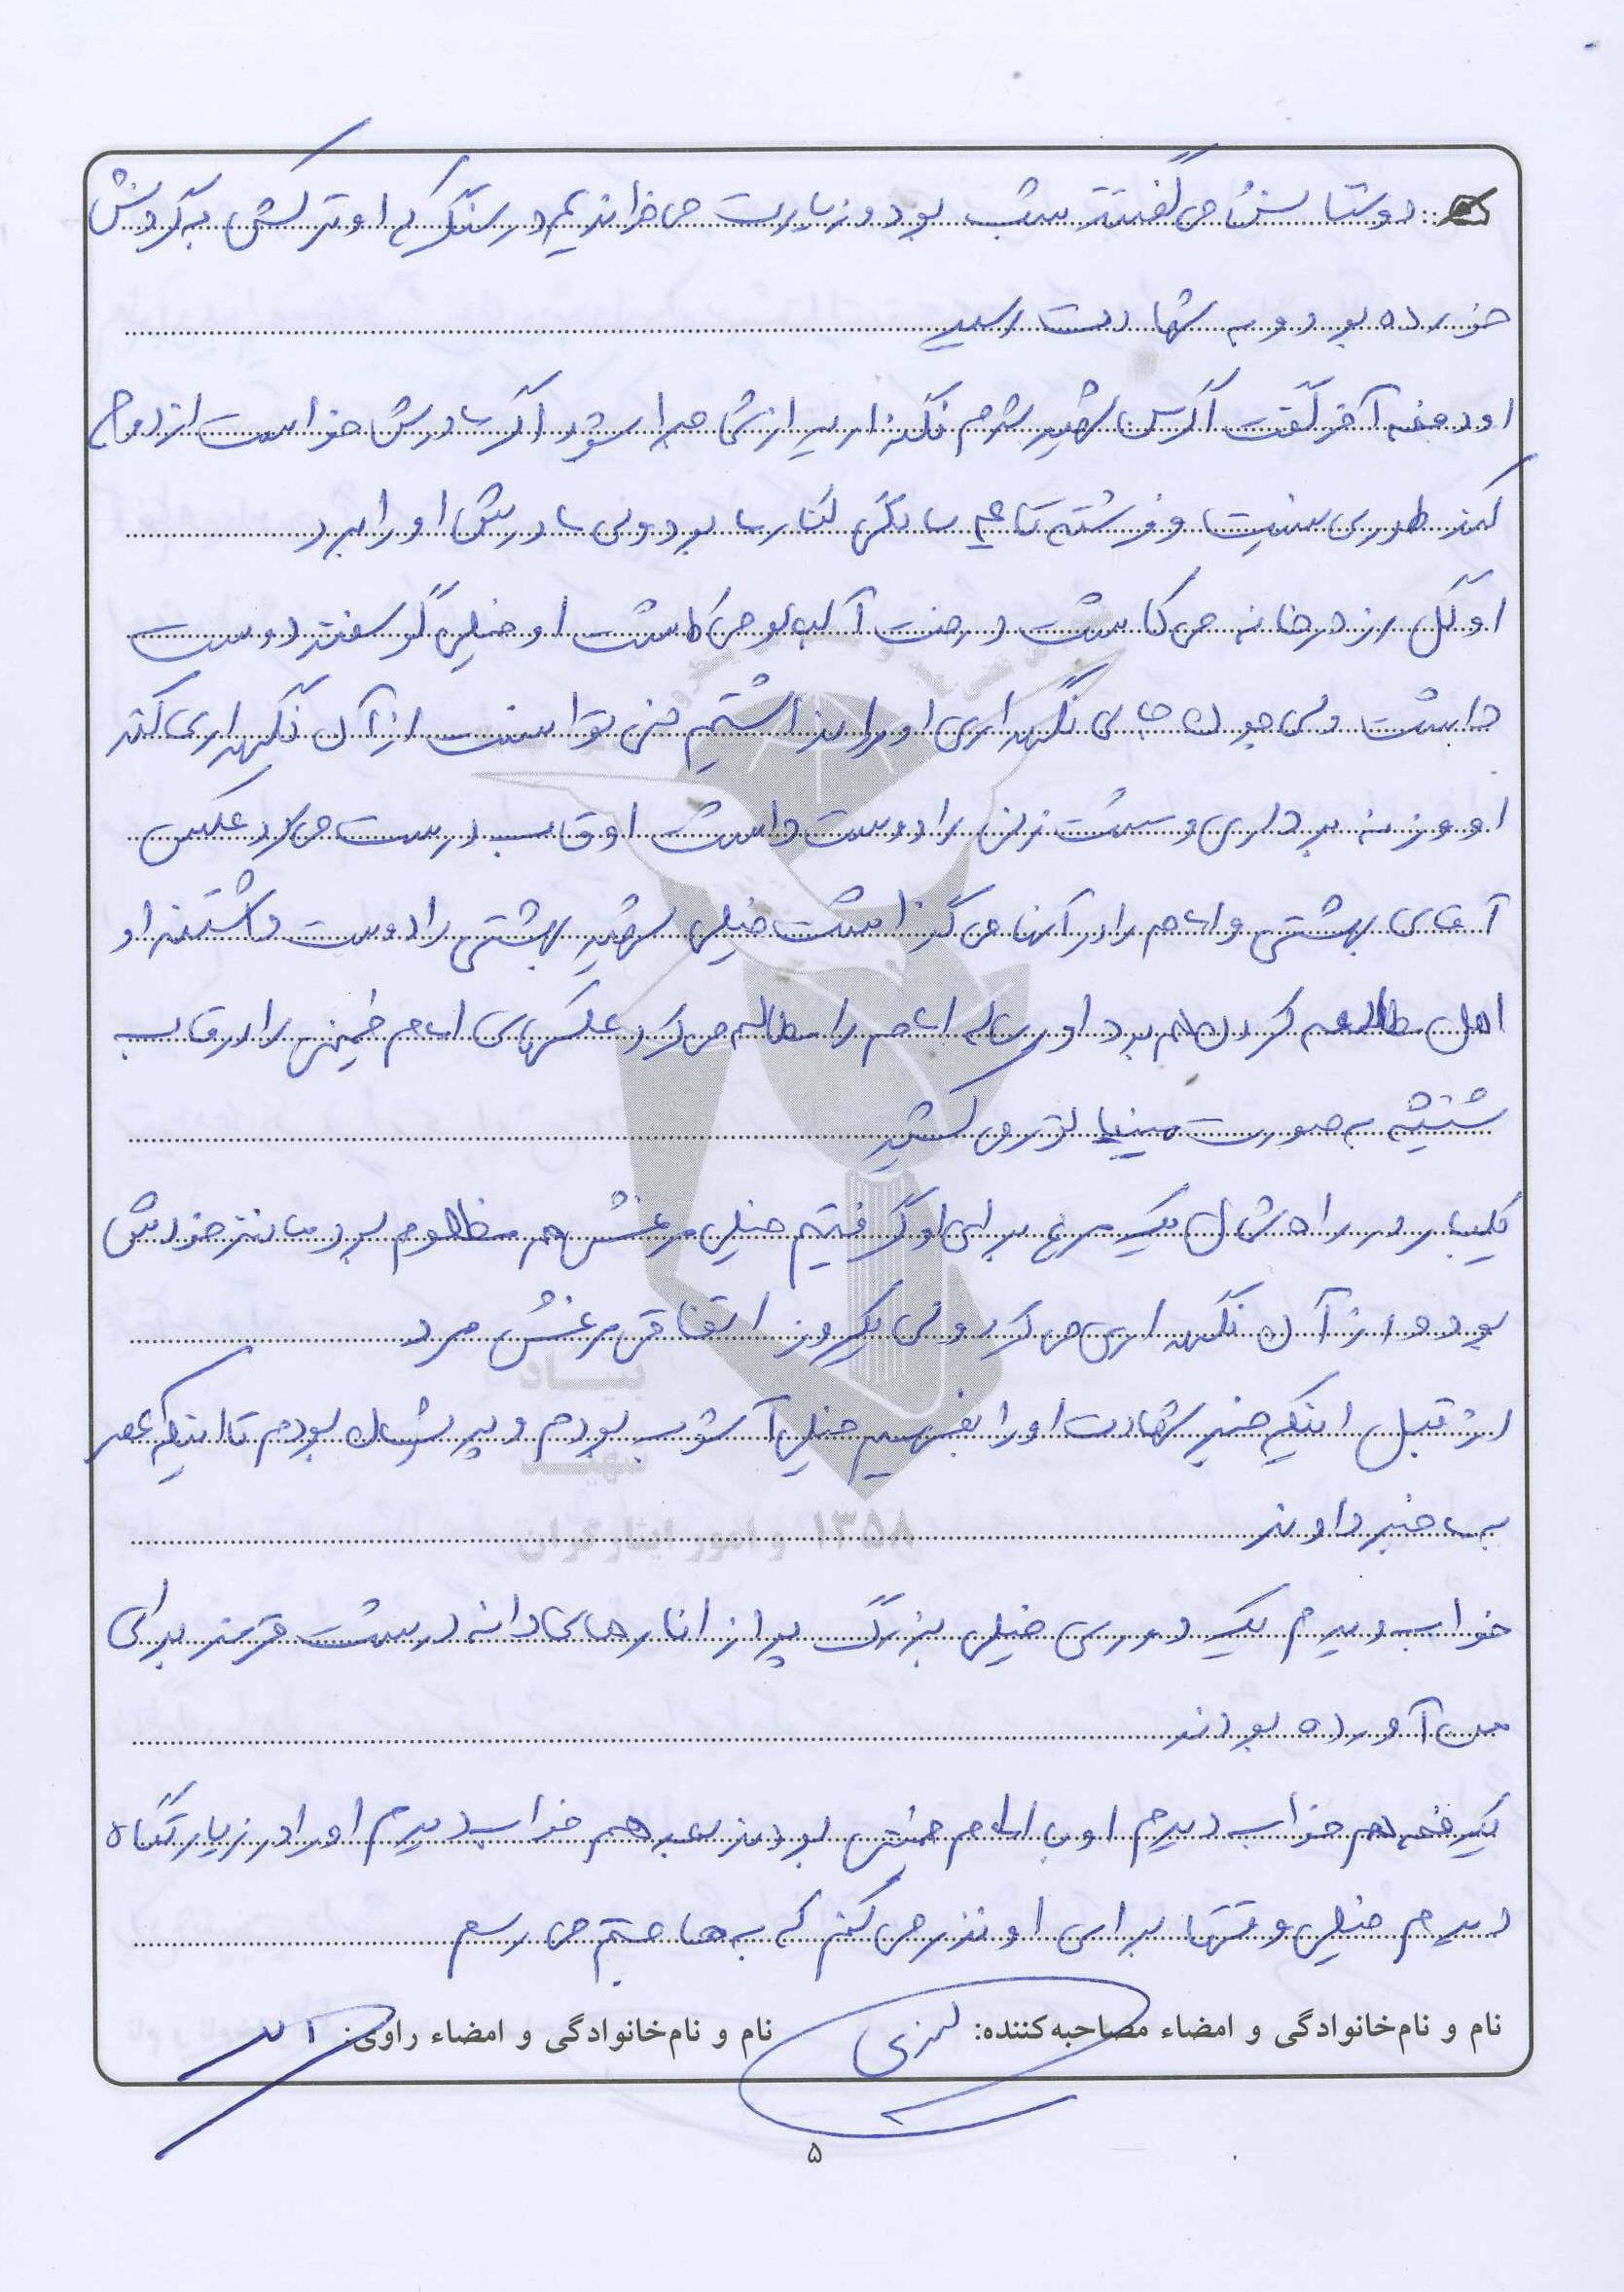 دوستانش می گفتند شب بود و زیارت می خواندیم در سنگر که او ترکش به گردنش
خورده بود و به شهادت رسید
او دفعه آخر گفت اگر من شهید شدم نگذارید از شما جدا شود اگر مادرش خواست ازدواج
کند طوری نیست و فرشته تا عید سالگی کنار ما بود ولی مادرش او را برد
او گل رز در خانه می کاشت درخت آلبالو می کاشت او خیلی گوسفند دوست
داشت ولی چون جای نگهداری او را نداشتیم نمی توانست از آن نگهداری کند
او وزنه برداری و مشت زنی را دوست داشت او قاب درست می کرد عکس
آقای بهشتی و امام را در آنها می گذاشت خیلی شهید بهشتی را دوست داشتند او
اهل مطالعه کردن هم بود او رساله امام را مطالعه می کرد عکسهای امام خمینی را در قاب
شیشه به صورت مینیاتور می کشید
یکبار در راه شمال یک مرغ برای او گرفتیم خیلی مرغش هم مظلوم بود مانند خودش
بود و از آن نگهداری می کرد ولی یکروز اتفاقی مرغش مرد
از قبل اینکه خبر شهادت او را بفهمیم خیلی آشوب بودم و پریشان بودم تا اینکه عصر
به خبر دادند
خواب دیدم یک دوری خیلی بزرگ پر از انارهای دانه درشت قرمز برای
من آورده بودند
یکدفعه هم خواب دیدم او با امام خمینی بودند بعد هم خواب دیدم او را در زیارتگاه
دیدم خیلی وقتها برای او نذر می کنم که به حاجتم می رسم
نام و نام‌خانوادگی و امضاء مصاحبه‌کننده: نام و نام‌خانوادگی و امضاء راوی:
۵
بنیاد
شهید
و امور ایثارگران ۱۳۵۸